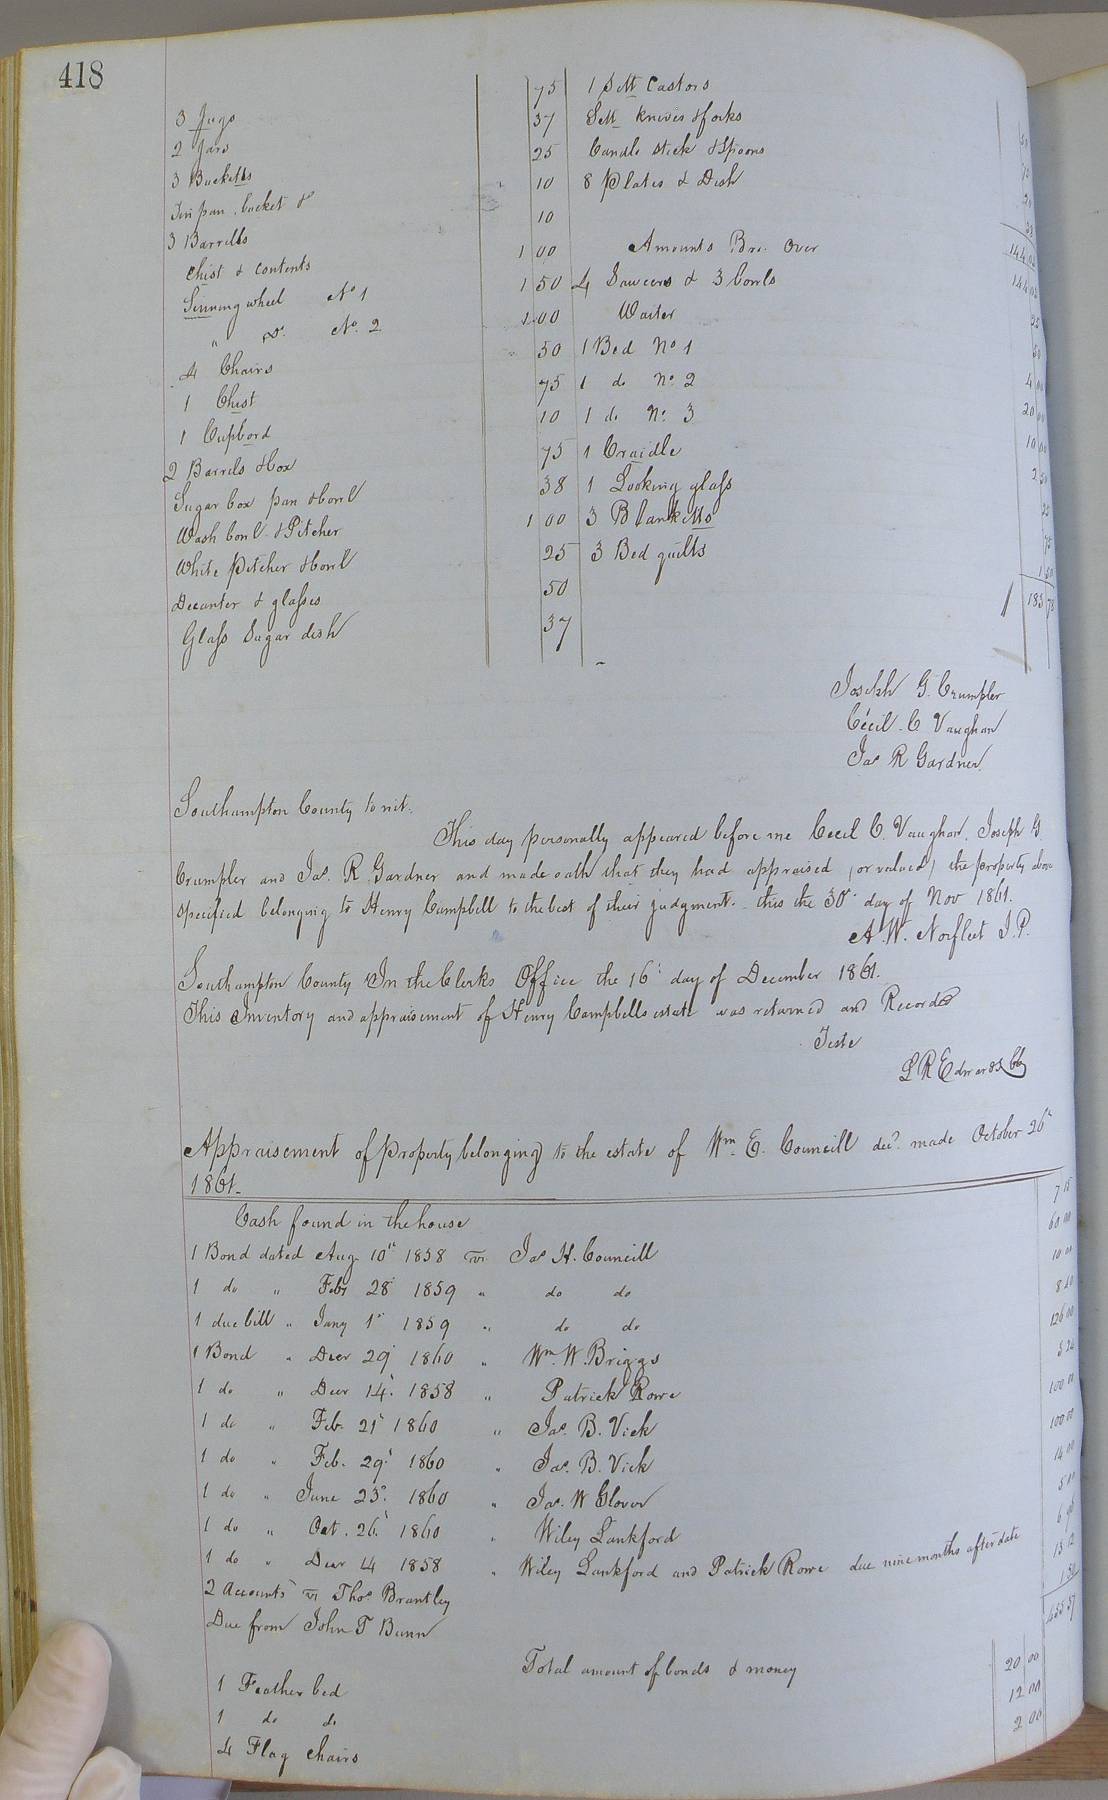 418
3 Jugs 75 1 Sett Castors 50
2 Jars 37 Sett Knives & forks
3 Bucketts 25 Candle stick & Spoons 20
Tin pan, bucket & 10 8 Plates & Dish 38
3 Barrells 10 144 02
Chist & contents 1 00 Amounts Bro. Over 144 02
Sinning wheel No 1 1 50 4 Saucers & 3 bowls 25
" Do. No. 2 1.00 Waiter 50
4 Chairs 50 1 Bed No 1 4 00
1 Chist 75 1 do No 2 20 00
1 Cupbord 10 1 do No. 3 10 00
2 Barrels & box 75 1 Craidle 2 50
Sugar box pan & bowl 38 1 Looking glass 25
Wash bowl & Pitcher 1 00 3 Blanketts 75
White pitcher & bowl 25 3 Bed quilts 1 50
Decanter & glasses 50 183 78
Glass Sugar dish 37
Joseph G. Crumpler
Cecil. C Vaughan
Jas R Gardner
Southampton County to wit.
This day personally appeared before me Cecil C. Vaughan, Joseph G
Crumpler and Jas. R. Gardner and made oath that they had appraised (or valued) the property above
specified belonging to Henry Campbell to the best of their judgment. this the 30th day of Nov 1861.
A. W. Norfleet J.P.
Southampton County In the Clerks Office the 16th day of December 1861.
This Inventory and appraisement of Henry Campbells estate was returned and Recorded
Teste
L R Edwards Clk
Appraisement of property belonging to the estate of Wm. E. Councill decd. made October 26th
1861.
Cash found in the house 7 15
1 Bond dated Aug 10th 1858 vs. Jas H. Councill 60 00
1 do " Feby 28th 1859 " do do 10 00
1 due bill " Jany 1st 1859 " do do 8 40
1 Bond " Decr 29th 1860 " Wm. W. Briggs 126 00
1 do " Decr 14th 1858 " Patrick Rowe 5 24
1 do " Feb. 21st 1860 " Jas. B. Vick 100 00
1 do " Feb. 29th 1860 " Jas. B. Vick 100 00
1 do " June 23rd 1860 " Jas. W Glover 14 00
1 do " Oct. 26th 1860 " Wiley Lankford 5 00
1 do " Decr 14 1858 " Wiley Lankford and Patrick Rowe due nine months after date
2 Accounts vs Thos. Brantley 13 12
Due from John T Bunn 1 50
Total amount of bonds & money 455 57
1 Feather bed 20 00
1 do do 12 00
4 Flag chairs 2 00